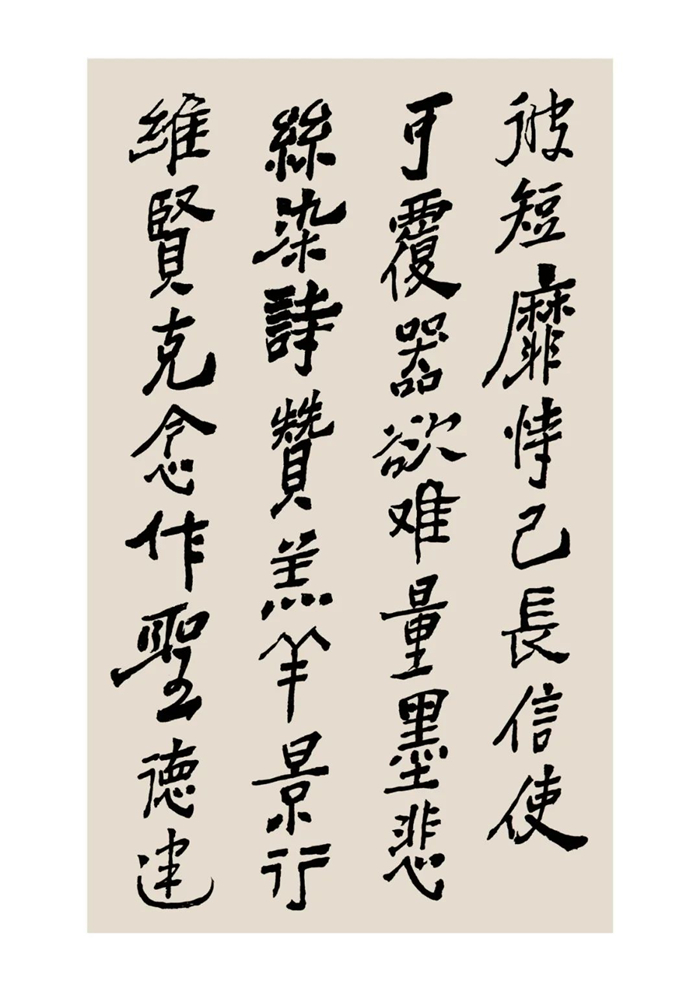 彼短靡恃己長信使
可覆器欲难量墨悲
絲染詩贊羔羊景行
維賢克念作聖德建